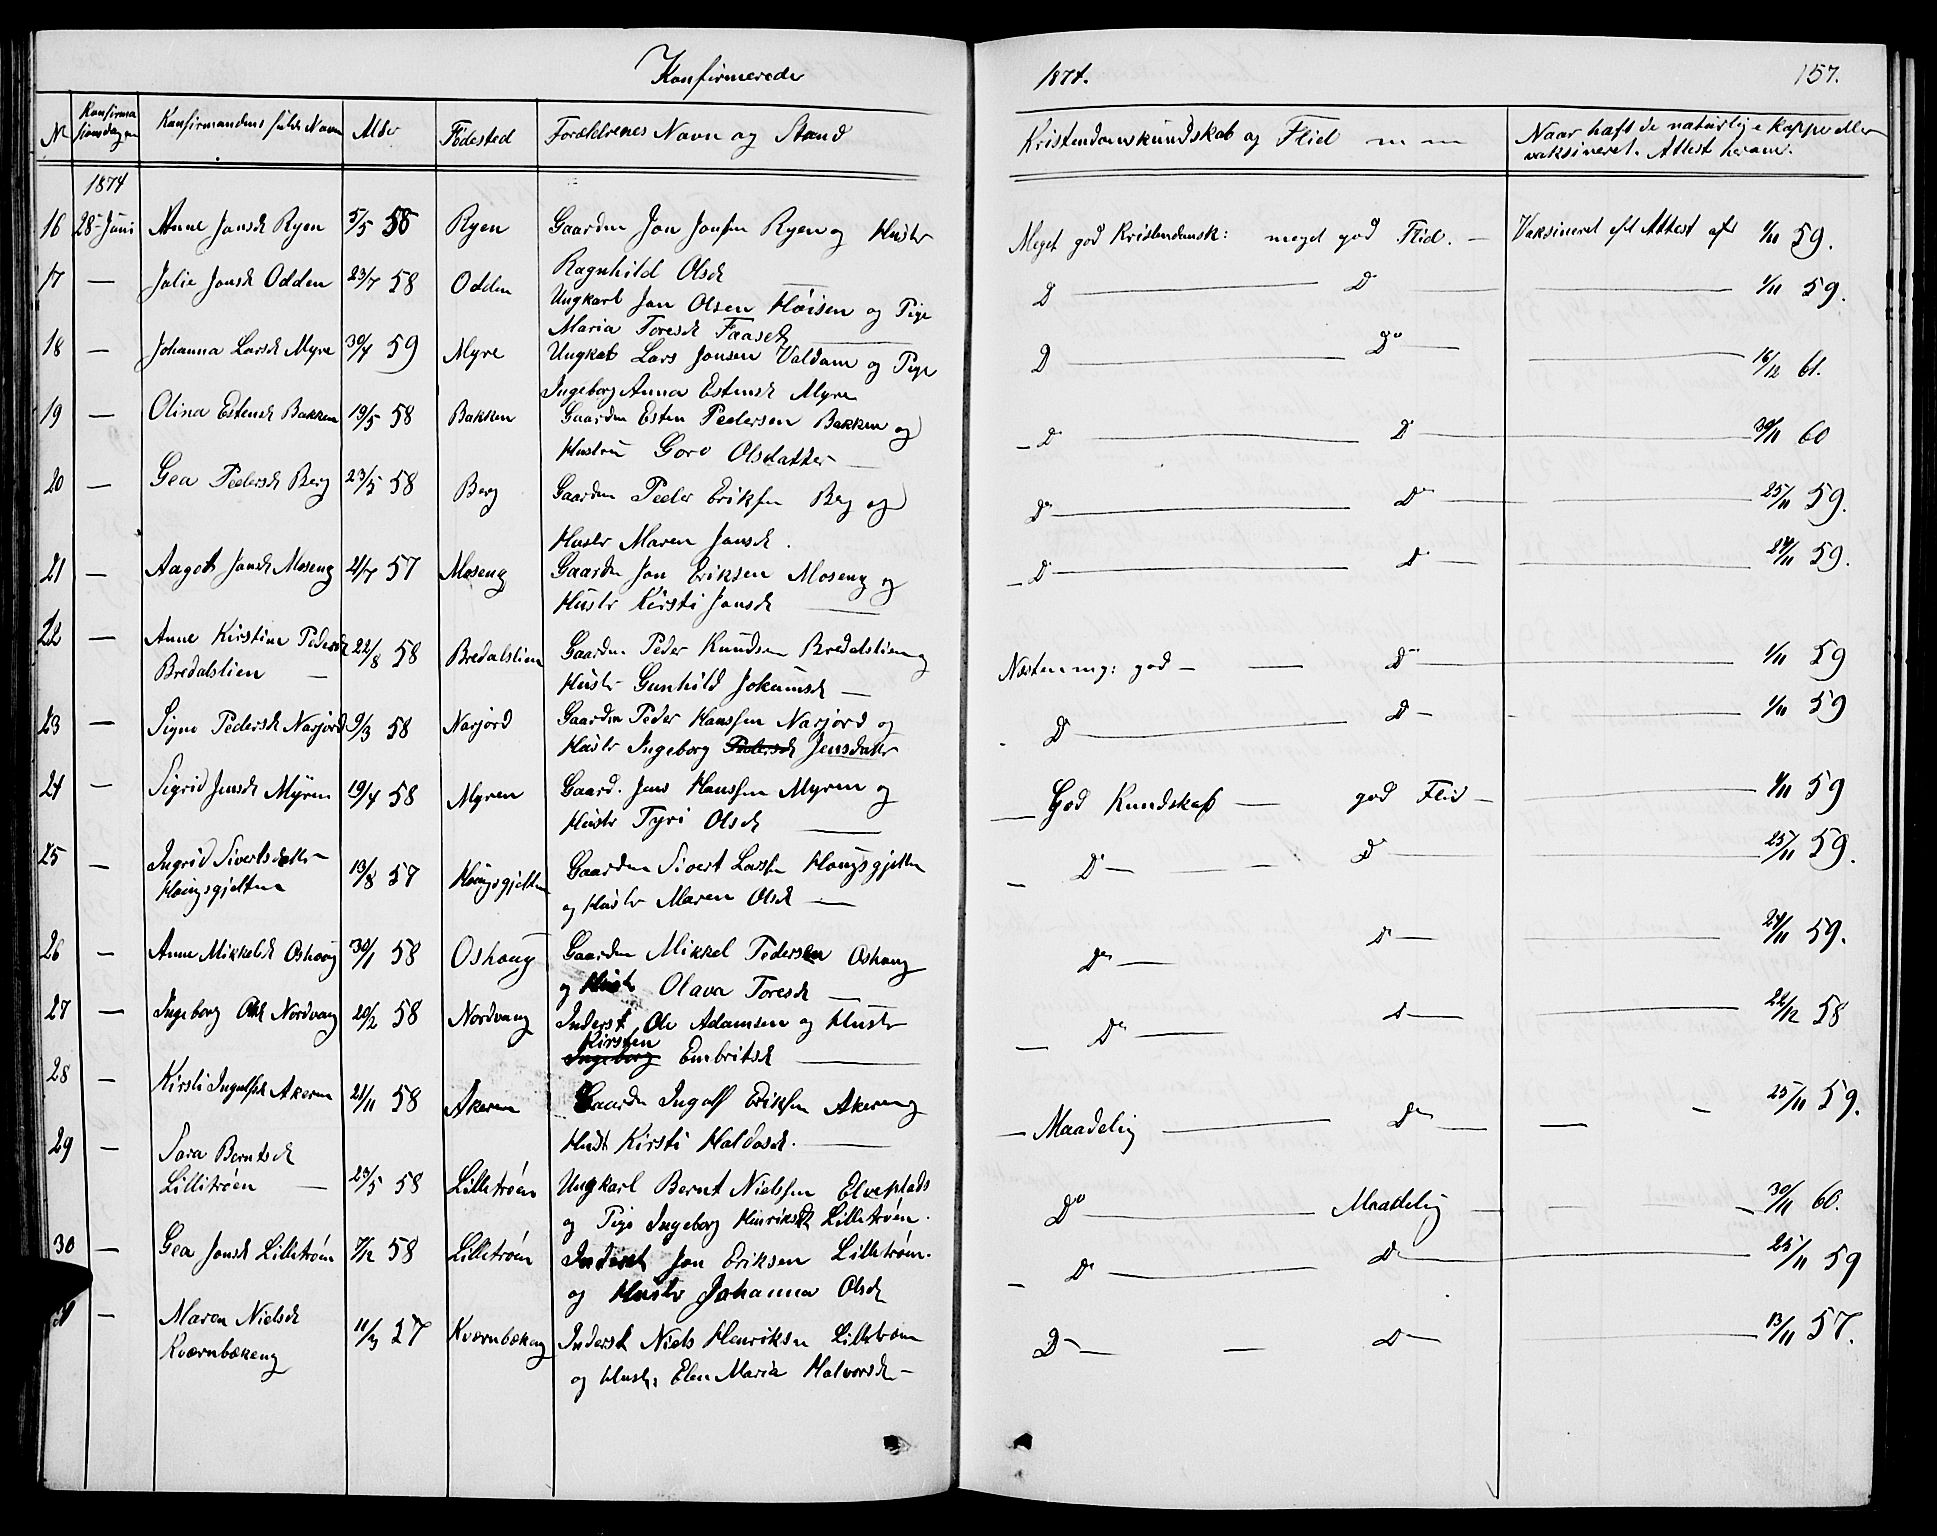 Konfirmerede 1874. 157.
No Konfirmasionsdagen Konfirmandens fulde Navn Alder Födested Forældrenes Navn og Stand Kristendomskundskab og Flid m m Naar haft de naturlige Kopper eller
vaksineret. Attest herom.
1874
16 28-Juni Anne Jonsd Ryen 5/5 58 Ryen Gaardm Jon Jonsen Ryen og Hustr Meget god Kristendomsk: meget god Flid. — Vaksineret efl Attest af 1/11 59.
Ragnhild Olsd
17 — Jolie Jonsd Odden 23/7 58 Odden Ungkarl Jon Olsen Höisen og Pige D — D — 1/11 59.
Maria Toresd Faased
18 — Johanna Larsd Myre 30/4 59 Myre Ungkab Lars Jonsen Valdam og Pige D — Do — 16/12 61.
Ingeborg Anna Estensd Myre
19 — Olina Estensd Bakken 19/5 58 Bakken Gaardm Esten Pedersen Bakken og — D — D — 30/11 60
Hustru Goro Olsdatter —
20 — Gea Pedersd Berg 23/5 58 Berg Gaardm Peder Eriksen Berg og Do — Do — 25/11 59.
Hustr Maren Jonsd.
21 — Aagot Jonsd Moseng 21/7 57 Moseng Gaardm Jon Eriksen Moseng og — D — D — 24/11 59.
Hustr Kirsti Jonsd —
22 — Anne Kirstine Pedersd 22/8 58 Bredalslien Gaardm Peder Knudsen Bredalslien og Næsten mg: god — — D — 1/11 59
Bredalslien — Hustr Gunhild Jokumsd —
23 — Signe Pedersd Narjord 9/3 58 Narjord Gaardm Peder Hanssen Narjord og D — D — 1/11 59
Hustr Ingeborg Pedersd Jensdatter
24 — Sigrid Jensd Myren 19/4 58 Myren Gaard. Jens Hanssen Myren og — God Kundskab — god Flid — 1/11 59
Hustr Tyri Olsd —
25 — Ingrid Sivertsdatter 13/8 57 Hougsgjelten Gaardm Sivert Larsen Hougsgjelten — D — — D — 25/11 59.
Hougsgjelten og Hustr Maren Olsd —
26 — Anne Mikkelsd Oshoug 30/1 58 Oshoug Gaardm Mikkel Pedersen Oshoug Do — D — 24/11 59.
og Hustr Olava Toresd —
27 — Ingeborg Olsd Nordvang 20/2 58 Nordvang Inderst Ole Adamsen og Hustr — Do — D — 22/12 58
Kirsten
Ingeborg Embritsd —
28 — Kirsti Ingulfsd Akeren 21/11 58 Akeren Gaardm Ingulf Eriksen Akeren og — Maadelig — Do — — 25/11 59.
Hust Kirsti Haldosd. —
29 — Sara Berntsd
Lillitröen — 23/5 58 Lilletröen Ungkarl Bernt Nielssen Elveplads Do — Maadelig — — 30/11 60.
og Pige Ingeborg Hinriksd Lilletröen.
30 — Gea Jonsd Lilletröen 7/12 58 Lilletröen Inderst Jon Eriksen Lilletröen. — Do — D — 25/11 59
og Hustr Johanna Olsd
— Maren Nielsd 11/3 57 Kværnbækeng Inderst Niels Henriksen Lilletröen D — — D — 13/11 57.
Kværnbækeng og Hustr: Elen Maria Halvorsd —